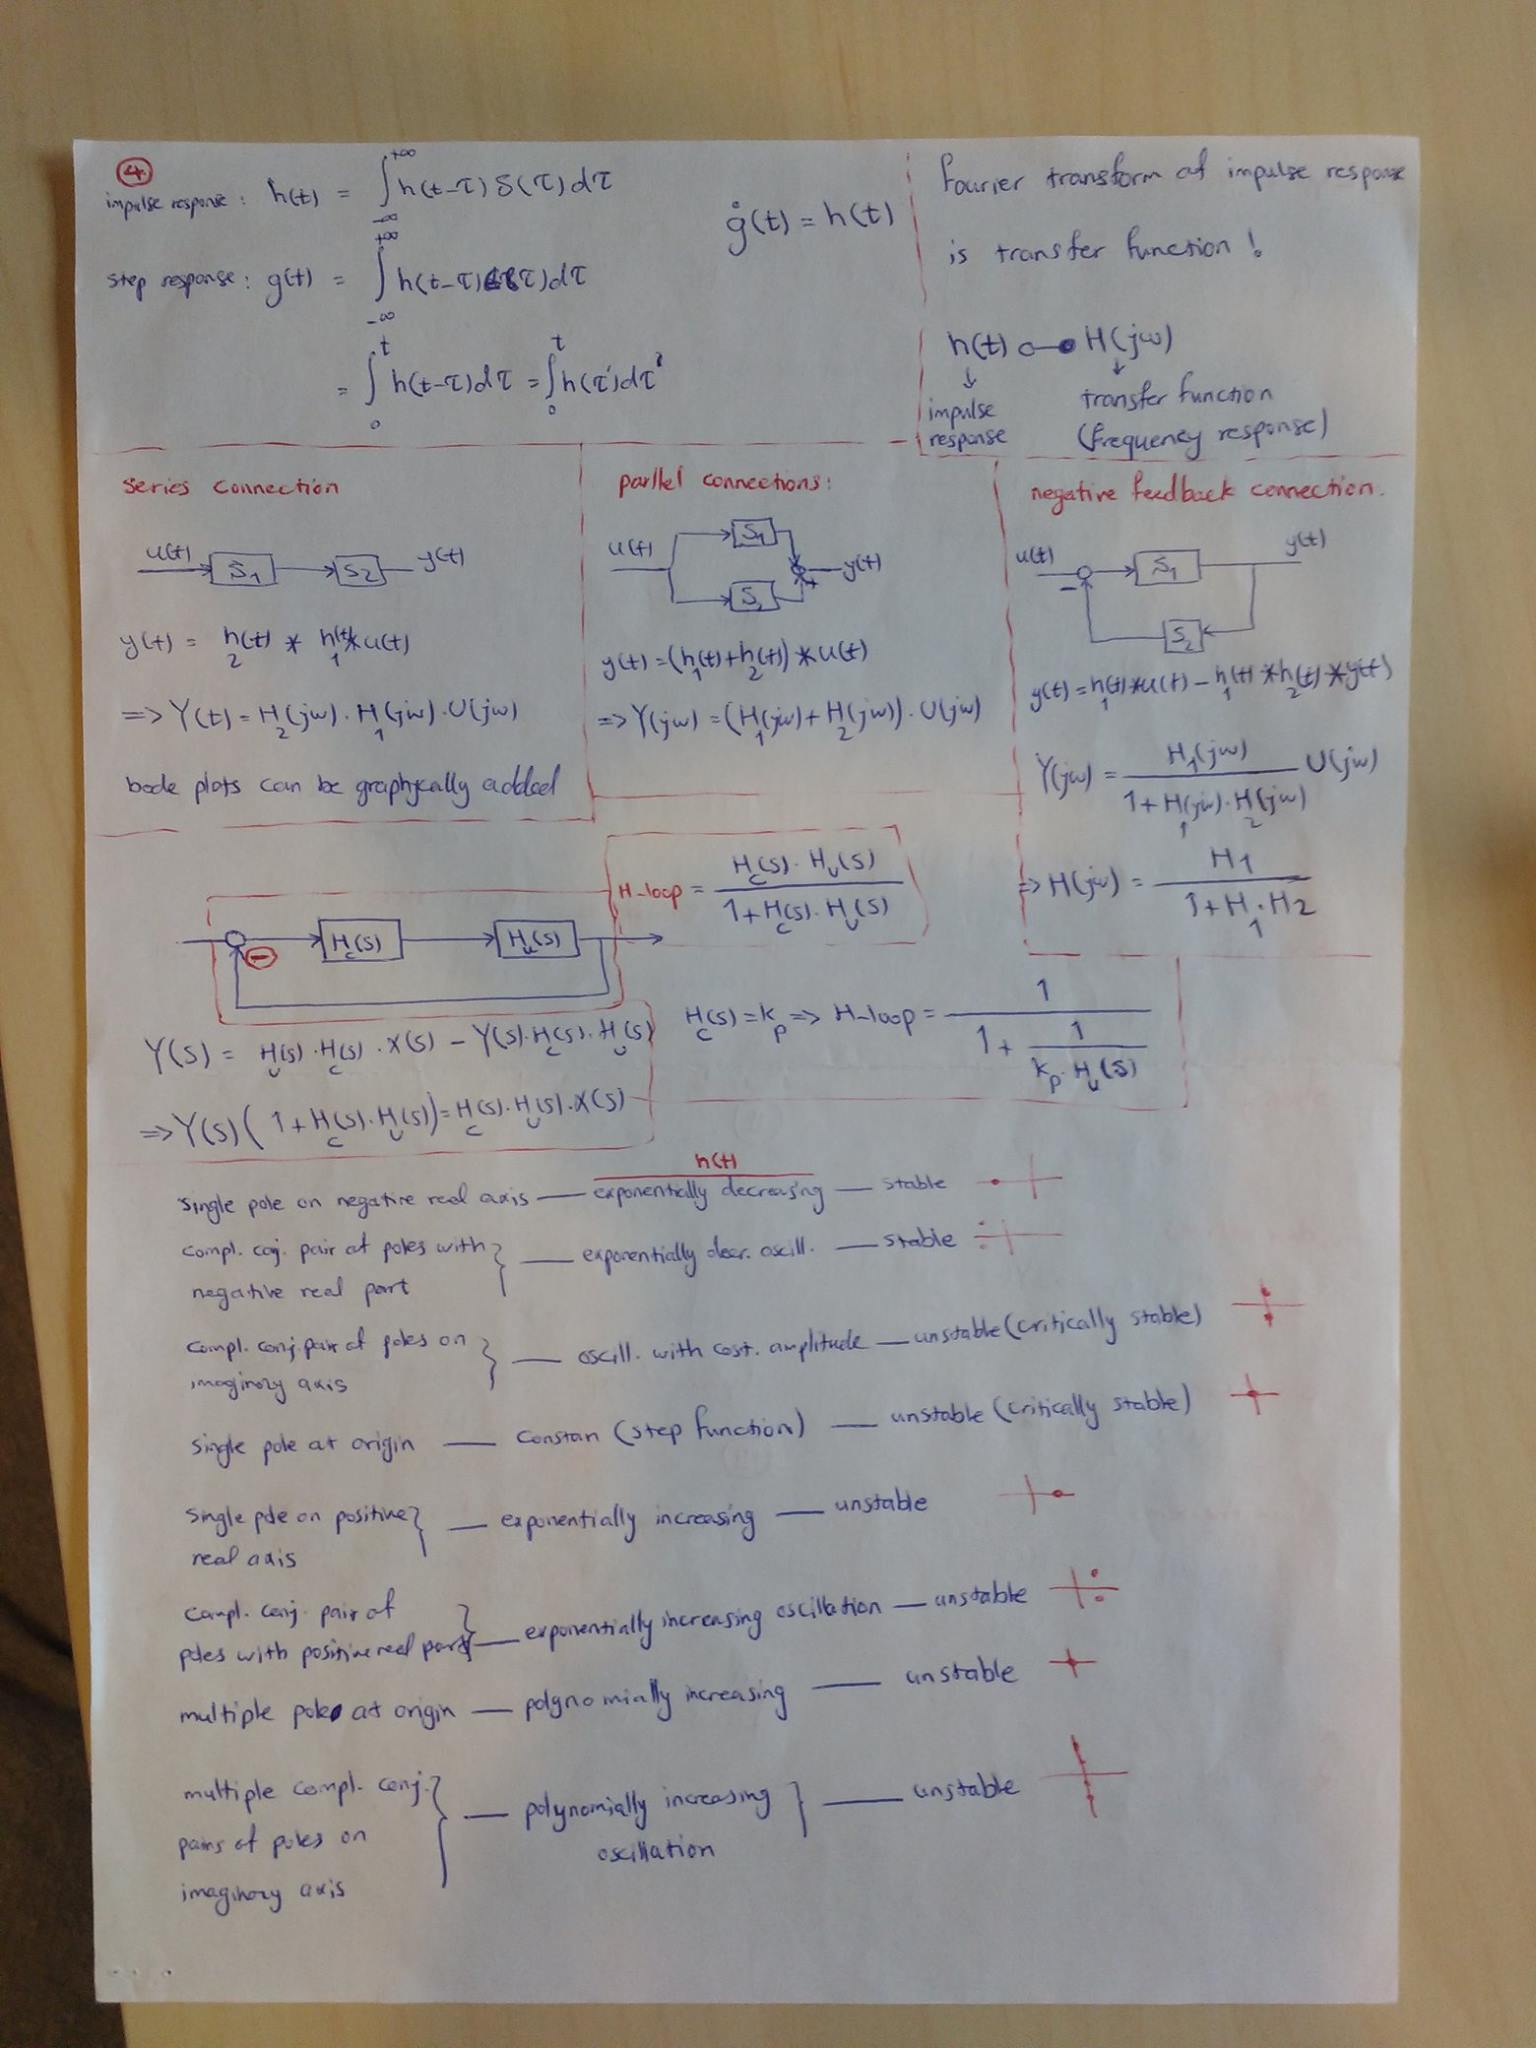 4
impulse response: h(t) = ∫_{-∞}^{+∞} h(t-τ) δ(τ) dτ
step response: g(t) = ∫_{-∞}^{+∞} h(t-τ) (τ) dτ
= ∫_0^t h(t-τ) dτ = ∫_0^t h(τ') dτ'
ġ(t) = h(t)
Fourier transform of impulse response
is transfer function!
h(t) ○—● H(jω)
↓ ↓
impulse response
transfer function
(Frequency response)
series connection
u(t) S1 S2 y(t)
y(t) = h2(t) * h1(t) * u(t)
=> Y(t) = H2(jω) · H1(jω) · U(jω)
bode plots can be graphycally added
parllel connections:
u(t) S1 S2 + y(t)
y(t) = (h1(t) + h2(t)) * u(t)
=> Y(jω) = (H1(jω) + H2(jω)) · U(jω)
negative feedback connection.
u(t) − S1 y(t)
S2
y(t) = h1(t) * u(t) - h1(t) * h2(t) * y(t)
Y(jω) = H1(jω) / (1 + H1(jω) · H2(jω)) U(jω)
=> H(jω) = H1 / (1 + H1 · H2)
Hc(s) Hu(s)
−
H-loop = Hc(s) · Hu(s) / (1 + Hc(s) · Hu(s))
Y(s) = Hu(s) · Hc(s) · X(s) - Y(s) · Hc(s) · Hu(s)
=> Y(s) (1 + Hc(s) · Hu(s)) = Hc(s) · Hu(s) · X(s)
Hc(s) = kp => H-loop = 1 / (1 + 1 / (kp · Hu(s)))
h(t)
single pole on negative real axis — exponentially decreasing — stable
compl. coj. pair of poles with } — exponentially decr. oscill. — stable
negative real part
compl. conj. pair of poles on } — oscill. with cost. amplitude — unstable (critically stable)
imaginary axis
single pole at origin — constan (step function) — unstable (critically stable)
single pole on positive } — exponentially increasing — unstable
real axis
compl. conj. pair of
poles with positive real part } — exponentially increasing oscillation — unstable
multiple poles at origin — polynomially increasing — unstable
multiple compl. conj. } — polynomially increasing } — unstable
pairs of poles on oscillation
imaginary axis